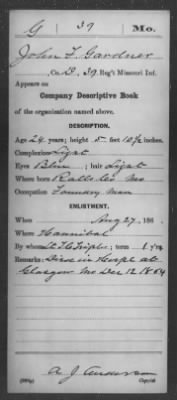 G 39 Mo.
John F. Gardner
, Co. D, 39 Reg't Missouri Inf.
Appears on
Company Descriptive Book
of the organization named above.
DESCRIPTION.
Age 24 years; height 5 feet 10½ inches.
Complexion Light
Eyes Blue ; hair Light
Where born Ralls Co Mo
Occupation
ENLISTMENT.
When Aug 27, 186 .
Where Hannibal
By whom ; term 1 y'rs.
Remarks: Died in Hospl at
Glasgow Mo Dec 12 1864
A J Anderson
Copyist.